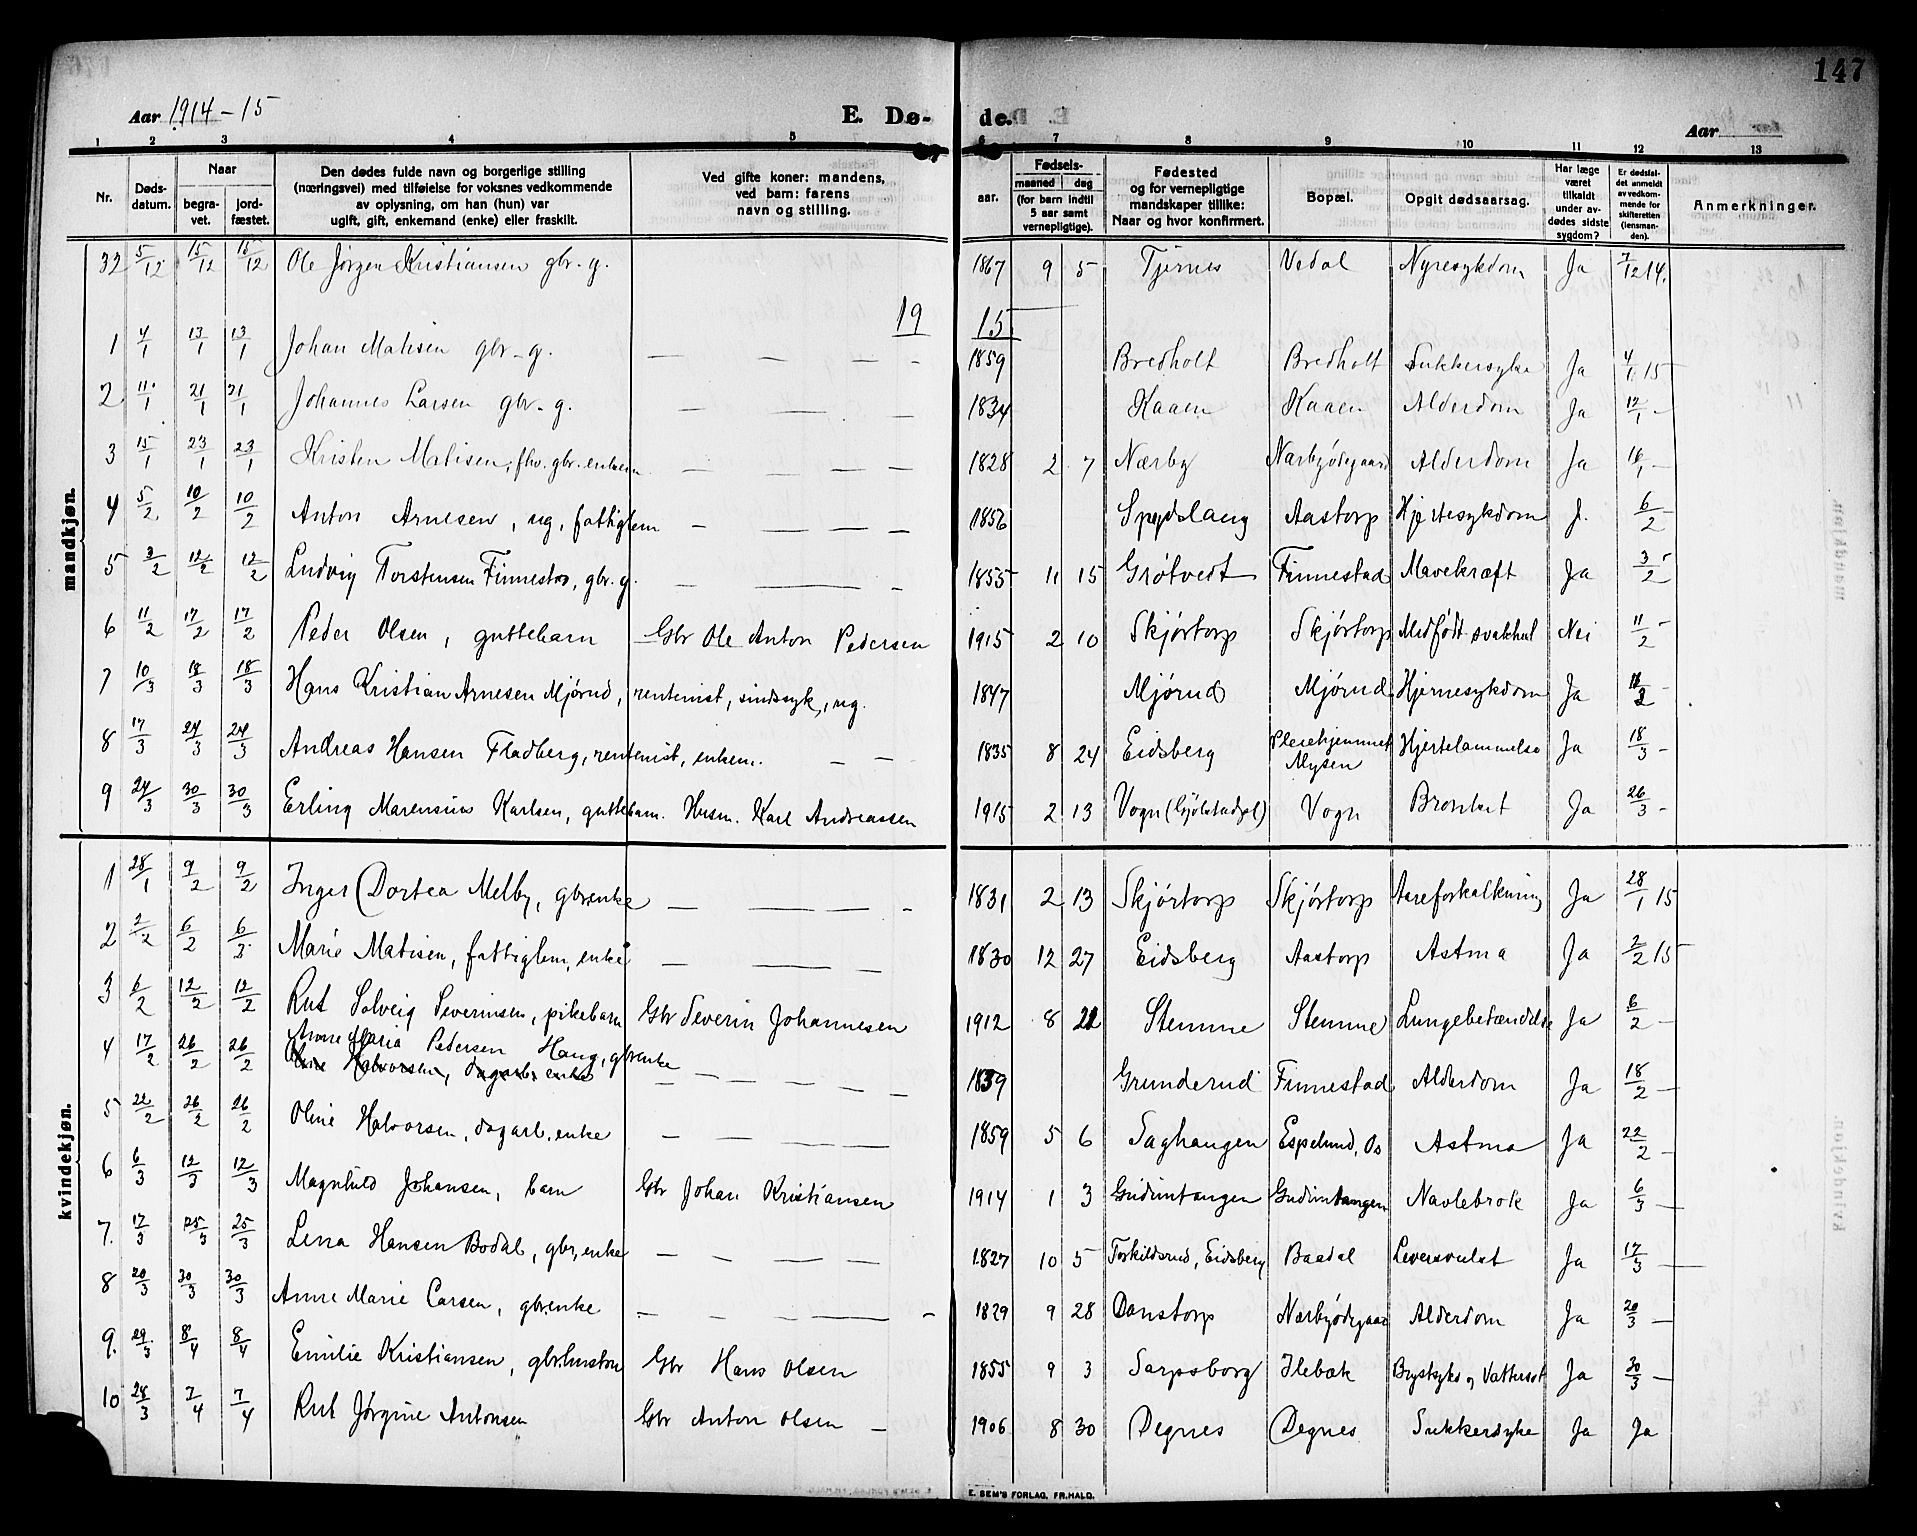 147
Aar 1914-15 E. Dø- de. Aar
1 2 3 4 5 6 7 8 9 10 11 12 13
Nr. Døds-datum. Naar begra-vet. jord-fæstet. Den dødes fulde navn og borgerlige stilling (næringsvei) med tilføielse for voksnes vedkommende av oplysning, om han (hun) var ugift, gift, enkemand (enke) eller fraskilt. Ved gifte koner: mandens, ved barn: farens navn og stilling. aar. Fødsels- maaned dag (for barn indtil 5 aar samt vernepligtige). Fødested og for vernepligtige mandskaper tillike: Naar og hvor konfirmert. Bopæl. Opgit dødsaarsag. Har læge været tilkaldt under av-dødes sidste sygdom? Er dødsfal-det anmeldt av vedkom-mende for skifteretten (lensman-den). Anmerkninger.
mandkjøn.
32 5/12 15/12 15/12 Ole Jørgen Kristiansen gbr. g. 1867 9 5 Tjernes Vedal Nyresykdom Ja 7/12 14.
19 15
1 4/1 13/1 13/1 Johan Matisen gbr. g. — — - 1859 Bredholt Bredholt Sukkersyke Ja 4/1 15
2 11/1 21/1 21/1 Johannes Larsen gbr. g. — — — 1834 Kaaen Kaaen Alderdom Ja 12/1 -
3 15/1 23/1 23/1 Kristen Matisen, fhv. gbr. enkem. — — — 1828 2 7 Nærby Nærbyødegaard Alderdom Ja 16/1 -
4 5/2 10/2 10/2 Anton Arnesen, ug, fattiglem — — — 1856 Spydslaug Aastorp Hjertesykdom J. 6/2 -
5 3/2 12/2 12/2 Ludvig Torstensen Finnestad, gbr. g. — — - 1855 11 15 Grøtvedt Finnestad Mavekræft Ja 3/2 -
6 11/2 17/2 17/2 Peder Olsen, guttebarn Gbr Ole Anton Pedersen 1915 2 10 Skjørtorp Skjørtorp Medfødt svakhet Nei 11/2 -
7 10/3 18/3 18/3 Hans Kristian Arnesen Mjørud, rentenist, sindssyk, ug. 1847 Mjørud Mjørud Hjernesykdom Ja -
8 17/3 24/3 24/3 Andreas Hansen Fladberg, rentenist, enkem. — — 1835 8 24 Eidsberg Pleiehjemmet Mysen Hjertelammelse Ja 18/3 -
9 24/3 30/3 30/3 Erling Marensius Karlsen, guttebarn. Husm. Karl Andreassen 1915 2 13 Vogn Vogn Bronkit Ja 26/3 -
kvindekjøn.
1 28/1 9/2 9/2 Inger Dortea Melby, gbr.enke — — — - 1831 2 13 Skjørtorp Skjørtorp Aareforkalkning Ja 28/1 15
2 2/2 6/2 6/3 Marie Matisen, fattiglem, enke — — — 1830 12 27 Eidsberg Aastorp Astma Ja 2/2 15
3 6/2 12/2 12/2 Rut Solveig Severinsen, pikebarn Gbr Severin Johannesen 1912 8 21 Stemme Stemme Lungebetændelse Ja 6/2 -
4 17/2 26/2 26/2 Anne Maria Pedersen Haug, gbr.enke — — — — 1839 Grunderud Finnestad Alderdom Ja 18/2 -
Oline Halvorsen, dagarb. enke
5 22/2 26/2 26/2 Oline Halvorsen, dagarb. enke — — — — 1859 5 6 Saghaugen Espelund, Os Astma Ja 22/2 -
6 6/3 12/3 12/3 Magnhild Johansen, barn Gbr Johan Kristiansen 1914 1 3 Gudimtangen Gudimtangen Navlebrok Ja 6/3 -
7. 17/3 25/3 25/3 Lena Hansen Bodal, gbr, enke — — — — 1827 10 5 Torkildsrud, Eidsberg Baadal Leversvulst Ja 17/3 —
8 20/3 30/3 30/3 Anne Marie Larsen, gbr.enke — — — — - 1829 9 28 Danstorp Nærbyødegaard Alderdom Ja 20/3 —
9. 29/3 8/4 8/4 Emilie Kristiansen, gbr.hustru Gbr Hans Olsen 1855 9 3 Sarpsborg Ilebæk Brystsyke og Vattersot Ja 30/3 —
10 28/3 7/4 7/4 Rut Jørgine Antonsen Gbr Anton Olsen — 1906 8 30 Degnes Degnes Sukkersyke Ja Ja
E. SEM'S FORLAG, FR.HALD.